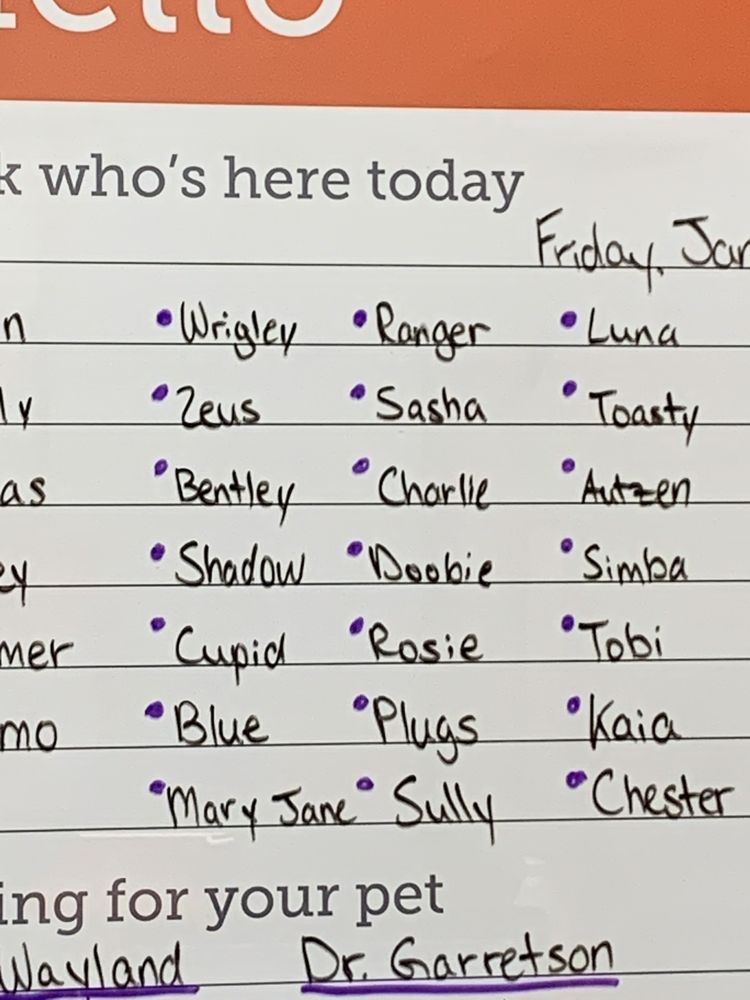 ello
k who's here today
Friday, Jan
n • Wrigley • Ranger • Luna
ly • Zeus • Sasha • Toasty
as • Bentley • Charlie • Autzen
ey • Shadow • Doobie • Simba
mer • Cupid • Rosie • Tobi
mo • Blue • Plugs • Kaia
• Mary Jane • Sully • Chester
ing for your pet
Wayland Dr. Garretson